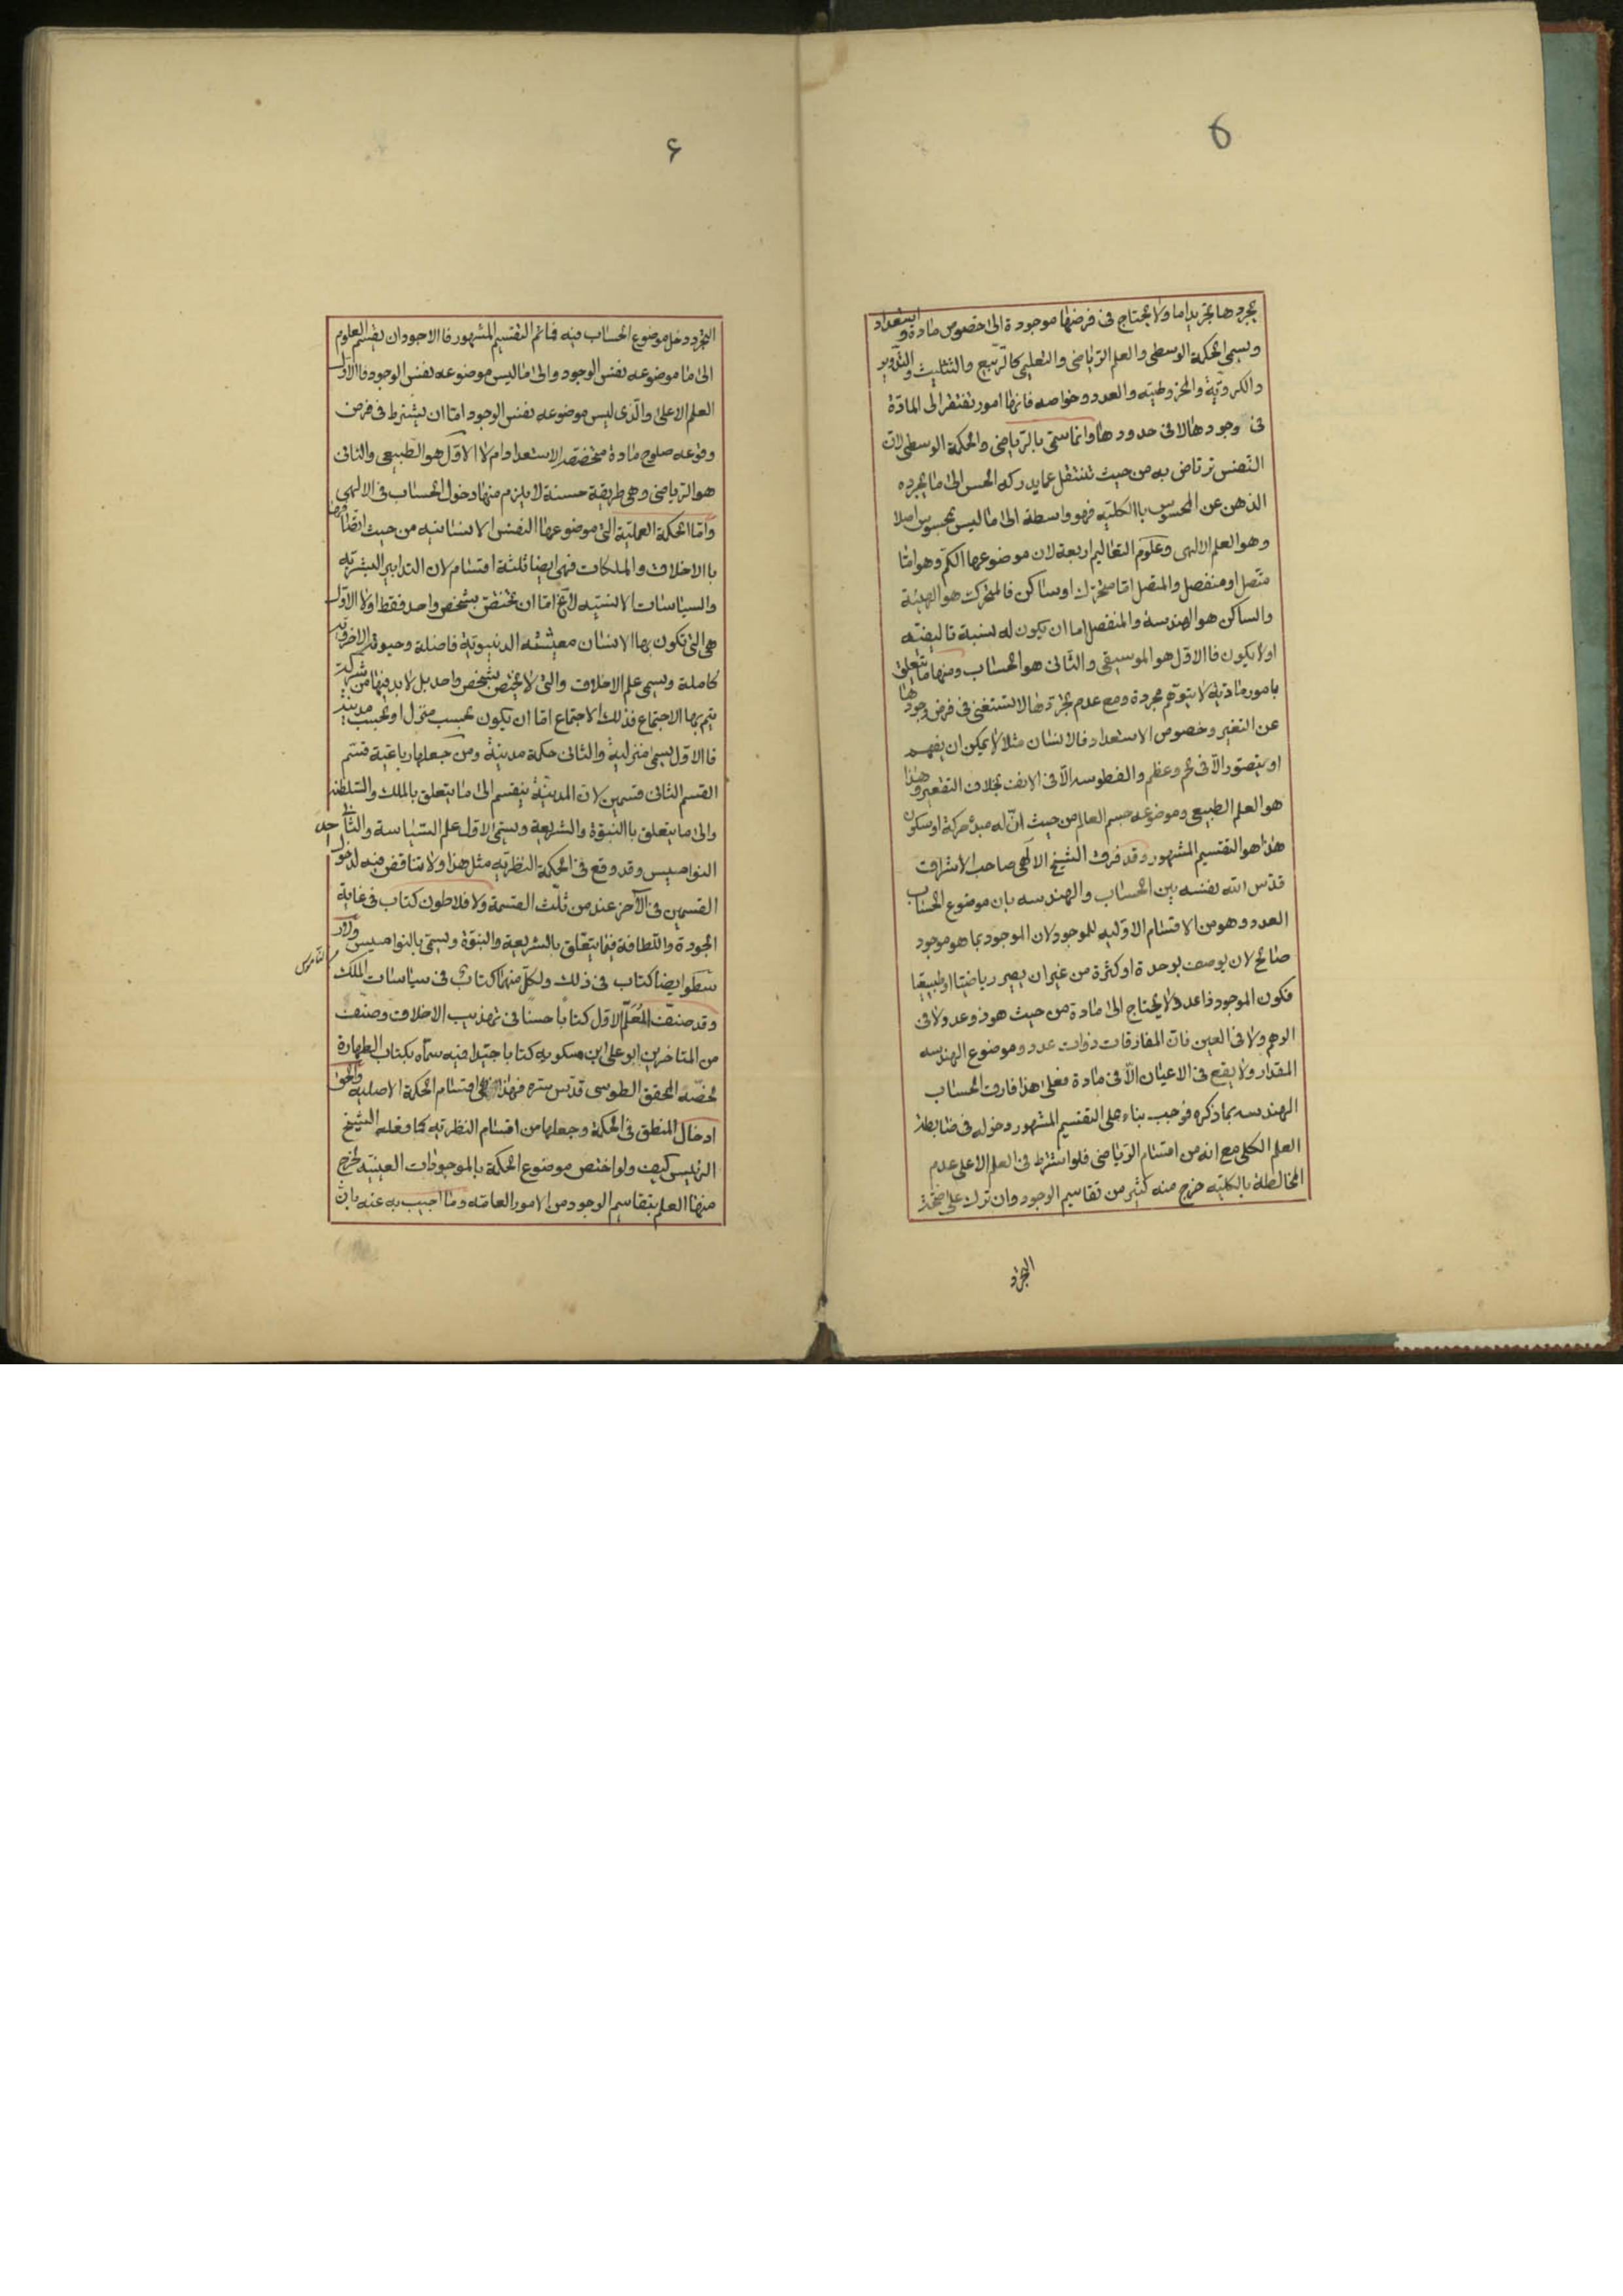 ۵
يجردها تجريدا ما ولا يحتاج فى فرضها موجودة الى خصوص مادة و استعداد
ويسمى الحكمة الوسطى والعلم الرياضى والتعليمى كالتربيع والتثليث والتدوير
والكروية والمخروطية والعدد وخواصه فانها امور تفتقر الى المادة
فى وجودها لا فى حدودها وانما سمى بالرياضى والحكمة الوسطى لان
النفس ترتاض به من حيث تنتقل عما يدركه الحس الى ما يجرده
الذهن عن المحسوس باالكلية فهو واسطة الى ما ليس بمحسوس اصلا
وهو العلم الالهى وعلوم التعاليم اربعة لان موضوعها الكم وهو اما
متصل او منفصل والمتصل اما متحرك او ساكن فالمتحرك هو الهيئة
والساكن هو الهندسة والمنفصل اما ان يكون له نسبة تاليفية
اولا يكون فاالاول هو الموسيقى والثانى هو الحساب ومنها ما يتعلق
بامور مادية لا يتوهم مجردة ومع عدم تجردها لا تستغنى فى فرض وجودها
عن التغير وخصوص الاستعداد فالانسان مثلا لا يمكن ان يفهم
او يتصور الا فى لحم وعظم والفطوسه الا فى الانف بخلاف التقعير وهذا
هو العلم الطبيعى وموضوعه جسم العالم من حيث ان له مبدء حركة او سكون
هذا هو التقسيم المشهور وقد فرق الشيخ الالهى صاحب الاشراق
قدس الله نفسه بين الحساب والهندسه بان موضوع الحساب
العدد وهو من الاقسام الاوليه للموجود لان الموجود بما هو موجود
صالح لان يوصف بوحدة او كثرة من غير ان يصير رياضيا او طبيعيا
فكون الموجود ذا عدد لا يحتاج الى مادة من حيث هو ذو عدد لا فى
الوهم ولا فى العين فان المفارقات ذوات عدد وموضوع الهندسه
المقدار ولا يقع فى الاعيان الا فى مادة فعلى هذا فارق الحساب
الهندسه بما ذكره فوجب بناء على التقسيم المشهور دخوله فى ضابطة
العلم الكلى مع انه من اقسام الرياضى فلو اشترط فى العلم الاعلى عدم
المخالطة بالكليه خرج منه كثير من تقاسيم الوجود وان ترك على صحة
التجرد
۶
التجرد دخل موضوع الحساب فيه فانم التقسيم المشهور فاالاجود ان يقسم العلوم
الى ما موضوعه نفس الوجود والى ما ليس موضوعه نفس الوجود فاالاول
العلم الاعلى والذى ليس موضوعه نفس الوجود اما ان يشترط فى فرض
وقوعه صلوح مادة متخصصة الاستعداد ام لا الاول هو الطبيعى والثانى
هو الرياضى وهى طريقة حسنة لا يلزم منها دخول الحساب فى الالهى
واما الحكمة العملية التى موضوعها النفس الانسانيه من حيث اتصافها
باالاخلاق والملكات فهى ايضا ثلثة اقسام لان التدابير البشريه
والسياسات الانسيه لا يخ اما ان تختص بشخص واحد فقط اولا الاول
هى التى تكون بها الانسان معيشته الدنيويه فاضلة وحيوته الاخرويه
كاملة ويسمى علم الاخلاق والتى لا يختص بشخص واحد بل لا بد فيها من شركة
يتم بها الاجتماع فذلك الاجتماع اما ان يكون بحسب منزل او بحسب مدينة
فاالاول يسمى منزلية والثانى حكمة مدينة ومن جعلها رباعية قسم
القسم الثانى قسمين لان المدينة ينقسم الى ما يتعلق بالملك والسلطنه
والى ما يتعلق باالنبوة والشريعة ويسمى الاول علم السياسة والثانى
النواميس وقد وقع فى الحكمة النظريه مثل هذا ولا تناقض فيه لدخول احد
القسمين فى الاخر عند من ثلث القسمة ولافلاطون كتاب فى غاية
الجودة واللطافة فيما يتعلق بالشريعة والنبوة ويسمى بالنواميس ولار
سطو ايضا كتاب فى ذلك ولكل منهما كتاب فى سياسات الملك
وقد صنف المعلم الاول كتابا حسنا فى تهذيب الاخلاق وصنف
من المتاخرين ابو على ابن مسكويه كتابا جيدا فيه سماه بكتاب الطهارة
لخصه المحقق الطوسى قدس سره فهذا هى اقسام الحكمة الاصليه والحق
ادخال المنطق فى الحكمة وجعلها من اقسام النظريه كما فعله الشيخ
الرئيس كيف ولو اختص موضوع الحكمة بالموجودات العينيه لخرج
منها العلم بتقاسيم الوجود من الامور العامه وما اجيب به عنه بان